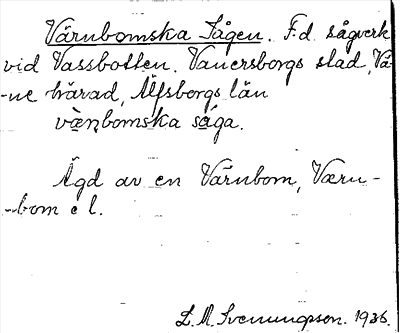 Värnbomska Sågen. F.d sågverk
vid Vassbotten. Vanersborgs stad, Vä-
-ne härad, Älfsborgs län
væṇbomska såga.
Ägd av en Värnbom, Værn-
-bom e l.
L. M. Svenungsson. 1936.